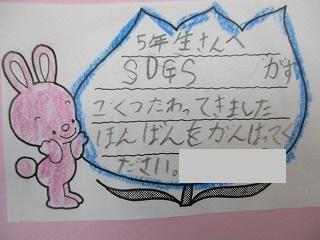 5年生さんへ
SDGS がす
ごくつたわってきました
ほんばんをがんばってく
ださい。